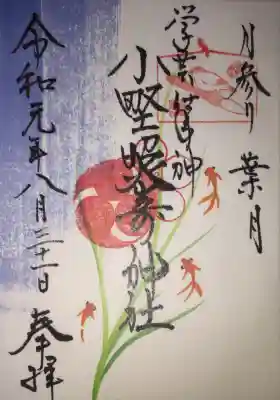 月参り 葉月
学芸篁神
小野照崎神社
令和元年八月三十一日 奉拝